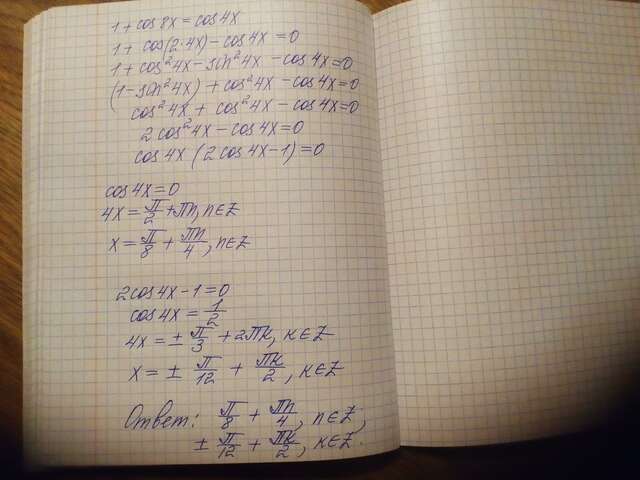 1 + cos 8x = cos 4x
1 + cos(2·4x) - cos 4x = 0
1 + cos²4x - sin²4x - cos 4x = 0
(1 - sin²4x) + cos²4x - cos 4x = 0
cos²4x + cos²4x - cos 4x = 0
2 cos²4x - cos 4x = 0
cos 4x (2 cos 4x - 1) = 0
cos 4x = 0
4x = π/2 + πn, n∈Z
x = π/8 + πn/4, n∈Z
2 cos 4x - 1 = 0
cos 4x = 1/2
4x = ± π/3 + 2πk, k∈Z
x = ± π/12 + πk/2, k∈Z
Ответ: π/8 + πn/4, n∈Z;
± π/12 + πk/2, k∈Z.